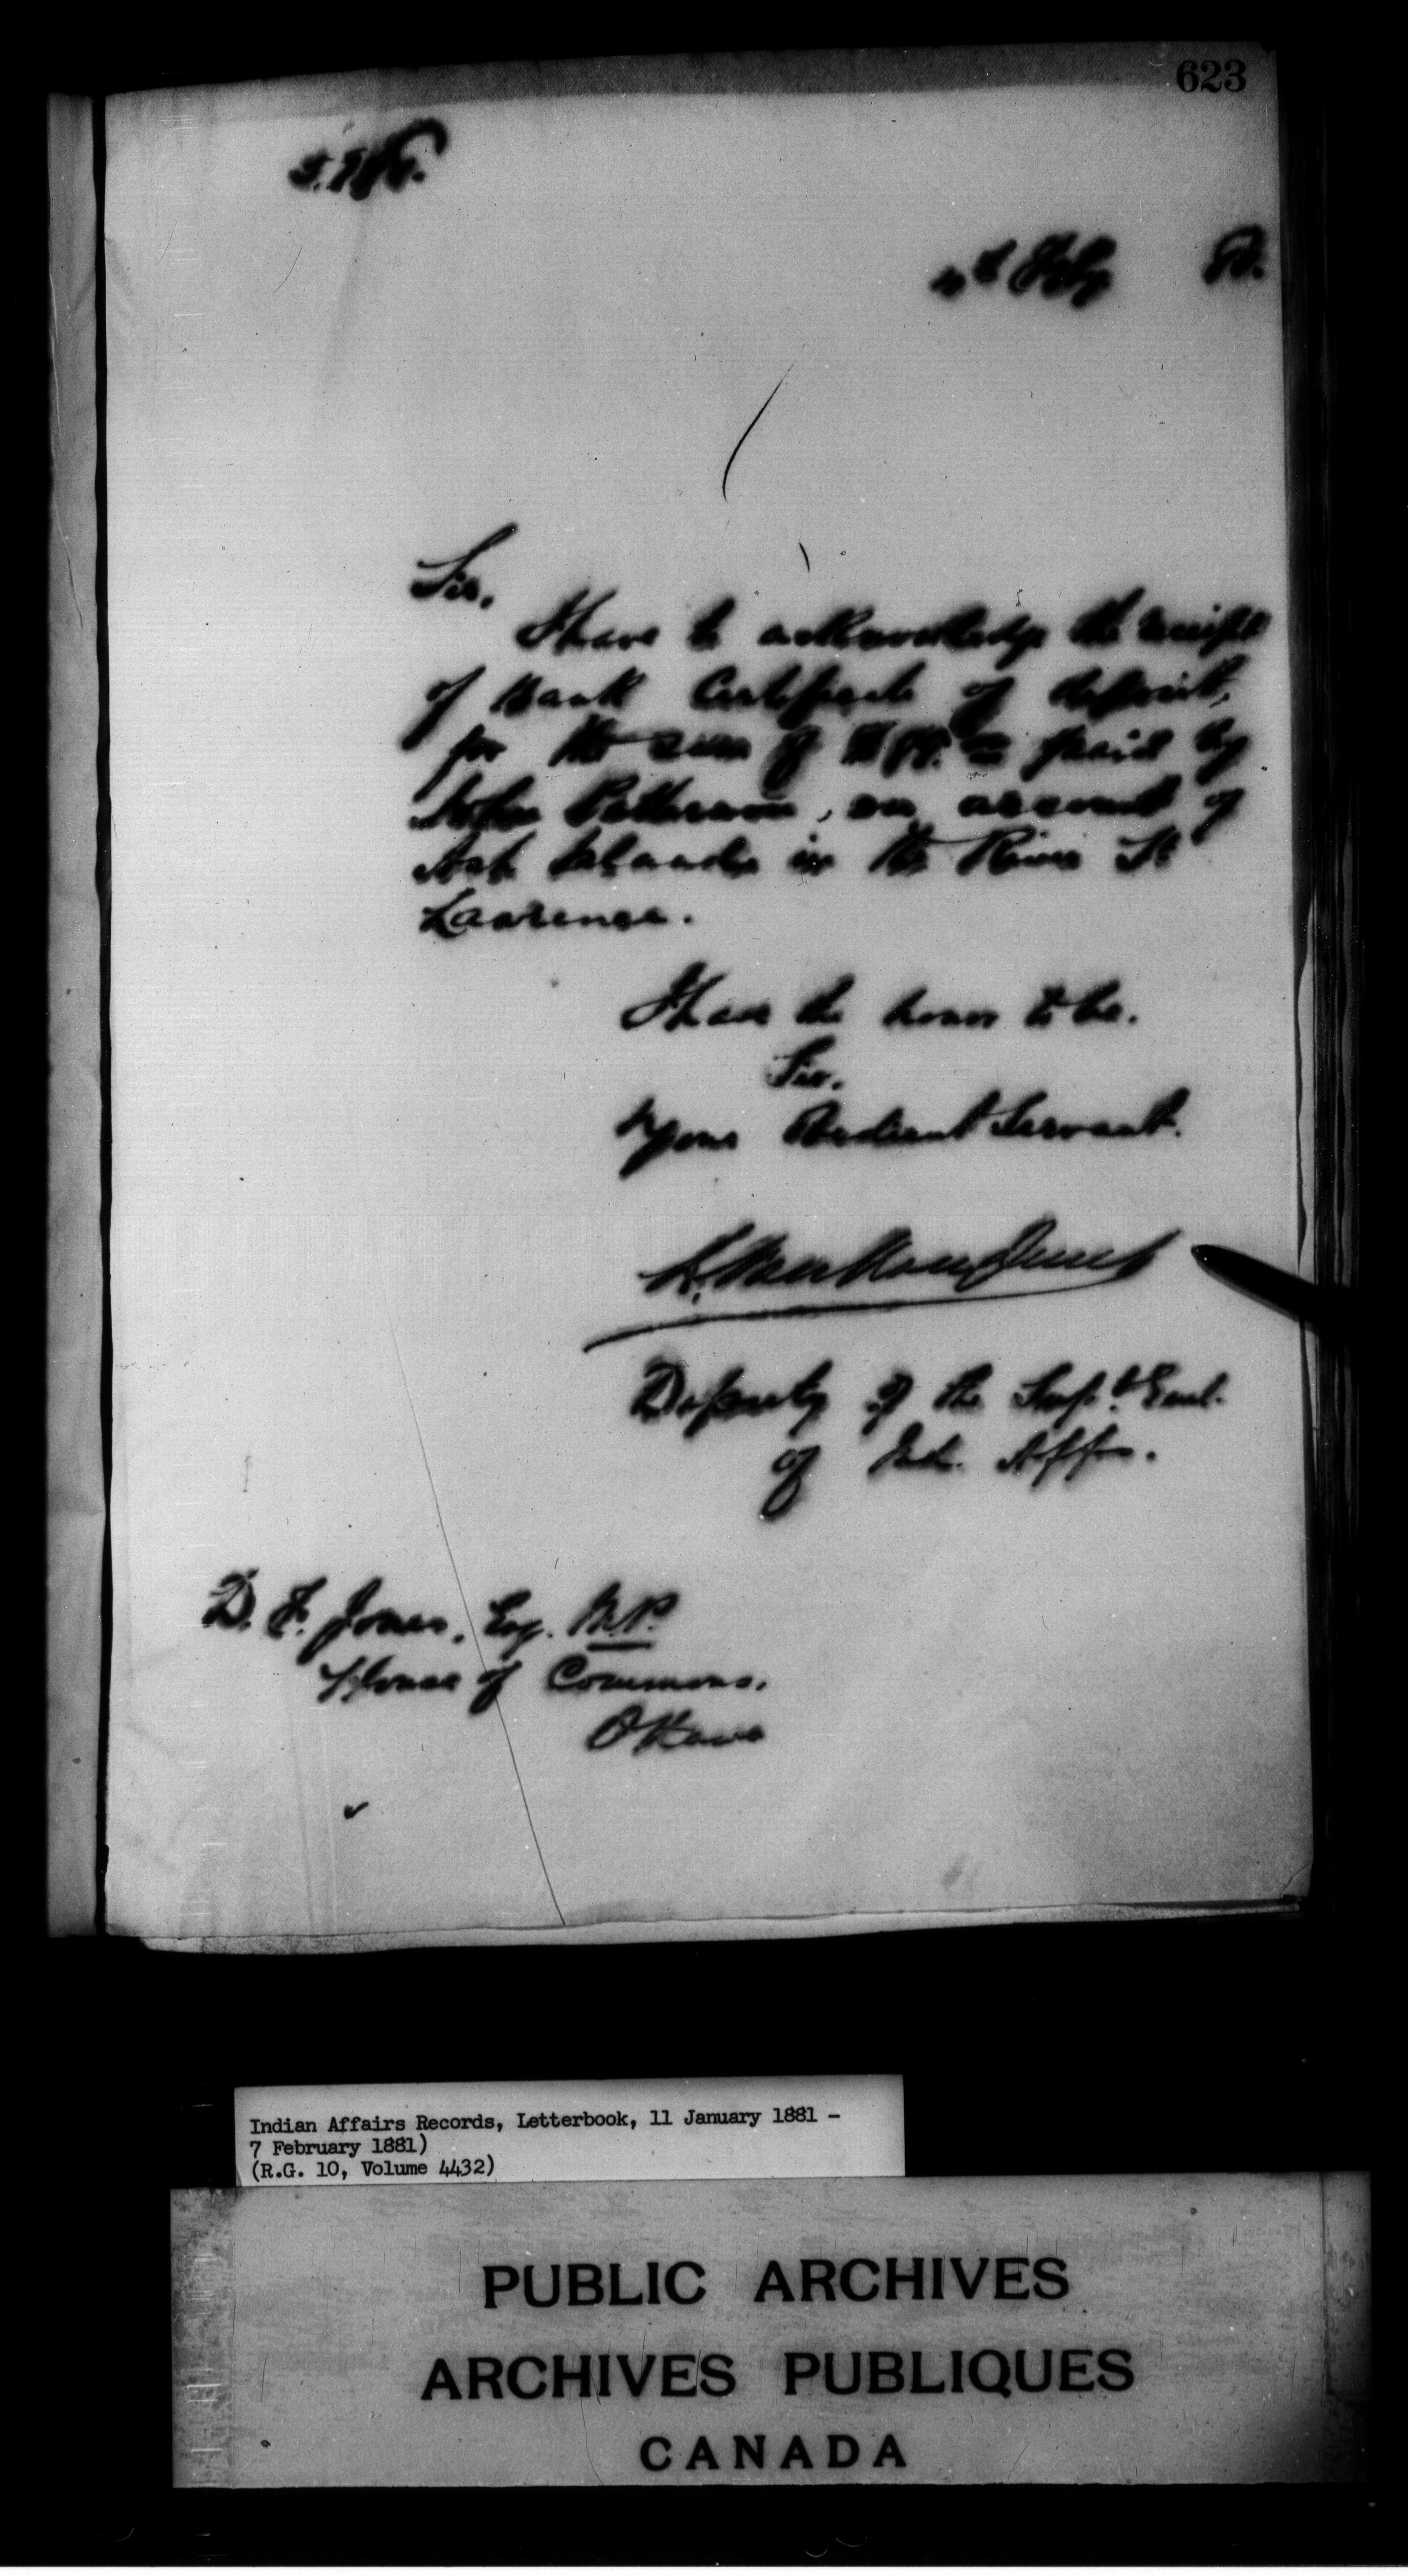 623
4th Feby 81.
Sir,
I have to acknowledge the receipt
of Bank Certificate of deposit,
for the sum of paid by
John Patterson, on account of
Ash Islands in the River St
Lawrence.
I have the honor to be.
Sir.
Your Obedient Servant.
L. VanKoughnet
Deputy of the Supt. Genl.
of Ind. Affrs.
D. F. Jones, Esq. M.P.
House of Commons.
Ottawa
Indian Affairs Records, Letterbook, 11 January 1881 -
7 February 1881)
(R.G. 10, Volume 4432)
PUBLIC ARCHIVES
ARCHIVES PUBLIQUES
CANADA